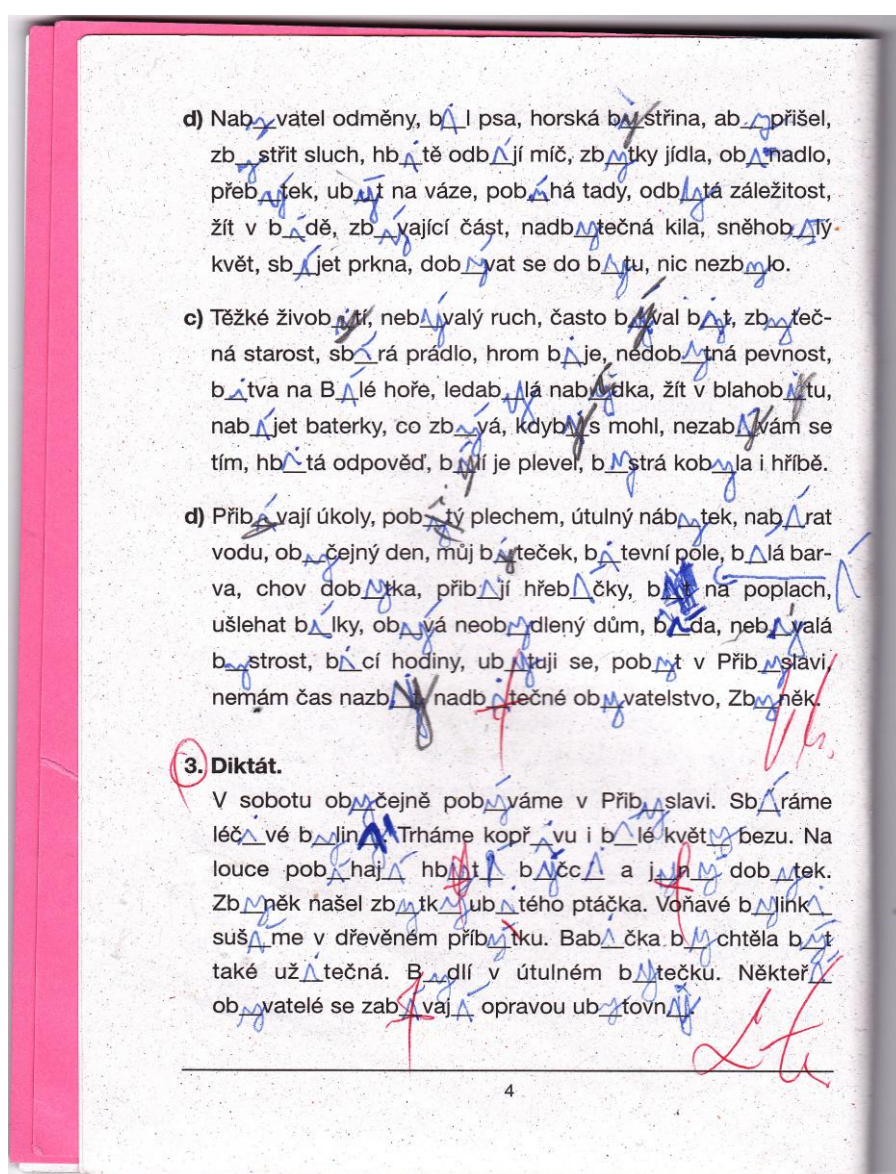 d) Nabyvatel odměny, bil psa, horská bystřina, aby přišel,
zbystřit sluch, hbitě odbíjí míč, zbytky jídla, obinadlo,
přebytek, ubýt na váze, pobíhá tady, odbytá záležitost,
žít v bídě, zbývající část, nadbytečná kila, sněhobílý
květ, sbíjet prkna, dobývat se do bytu, nic nezbylo.
c) Těžké živobytí, nebývalý ruch, často býval bit, zbyteč-
ná starost, sbírá prádlo, hrom bije, nedobytná pevnost,
bitva na Bílé hoře, ledabylá nabídka, žít v blahobytu,
nabíjet baterky, co zbývá, kdybys mohl, nezabývám se
tím, hbitá odpověď, býlí je plevel, bystrá kobyla i hříbě.
d) Přibývají úkoly, pobitý plechem, útulný nábytek, nabírat
vodu, obyčejný den, můj byteček, bitevní pole, bílá bar-
va, chov dobytka, přibíjí hřebíčky, bít na poplach,
ušlehat bílky, obývá neobydlený dům, bída, nebývalá
bystrost, bicí hodiny, ubytuji se, pobyt v Přibyslavi,
nemám čas nazbyt, nadbytečné obyvatelstvo, Zbyněk.
3. Diktát.
V sobotu obyčejně pobýváme v Přibyslavi. Sbíráme
léčivé byliny. Trháme kopřivu i bílé květy bezu. Na
louce pobíhají hbytí býčci a jyný dobytek.
Zbyněk našel zbytky ubitého ptáčka. Voňavé bylinky
sušíme v dřevěném příbytku. Babička by chtěla být
také užitečná. Bydlí v útulném bytečku. Někteří
obyvatelé se zabívají opravou ubytovny.
4